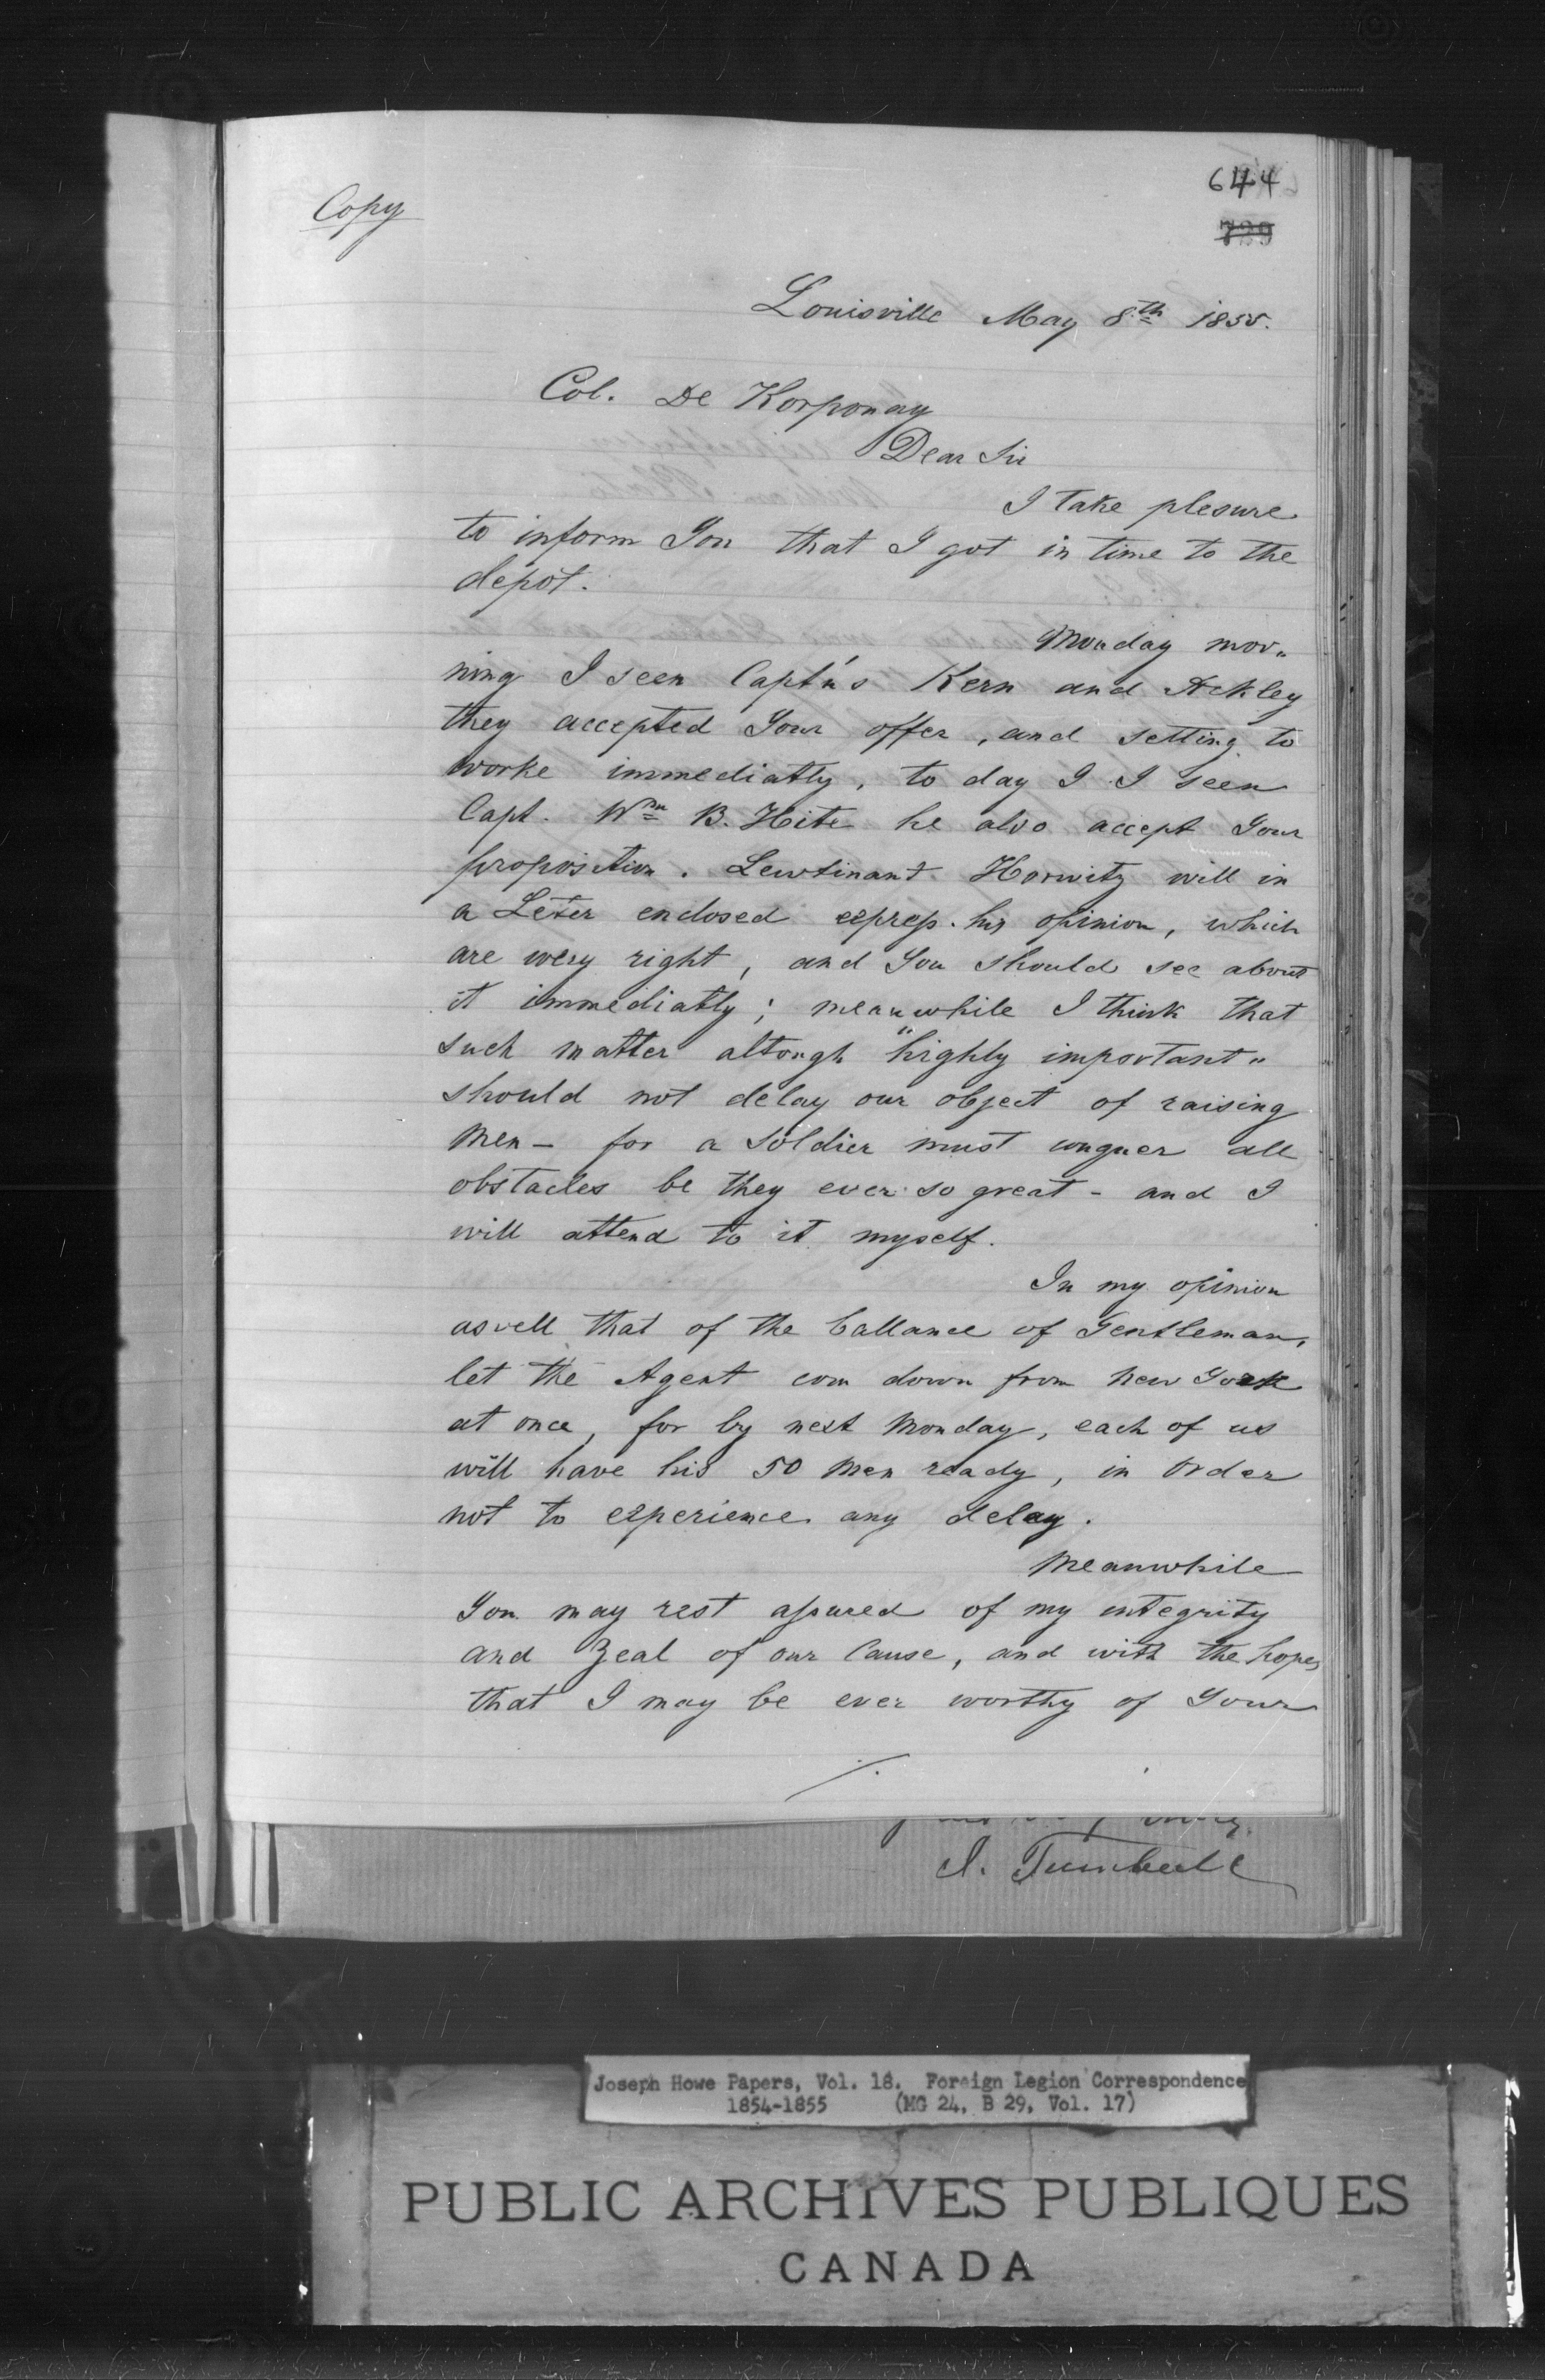 644
729
Copy
Louisville May 8th 1855.
Col. De Korponay
Dear Sir
I take plesure
to inform You that I got in time to the
depot.
Monday mor„
ning I seen Captn's Kern and Ackley
they accepted Your offer, and setting to
worke immediatly, to day I I seen
Capt. Wm B. Hite he also accept Your
proposition. Lewtinant Horwitz will in
a Leter enclosed expreſs his opinion, which
are wery right, and You should see about
it immediatly; meanwhile I think that
such matter altough "highly important„
should not delay our object of raising
men – for a Soldier must conquer all
obstacles be they ever so great – and I
will attend to it myself.
In my opinion
asvell that of the ballance of Gentleman,
let the Agent com down from New York
at once, for by next Monday, each of us
will have his 50 Men ready, in Order
not to experience any delay.
Meanwhile
You may rest aſsured of my integrity
and Zeal of our Cause, and with the hopes
that I may be ever worthy of Your
/.
Joseph Howe Papers, Vol. 18. Foreign Legion Correspondence
1854-1855 (MG 24, B 29, Vol. 17)
PUBLIC ARCHIVES PUBLIQUES
CANADA